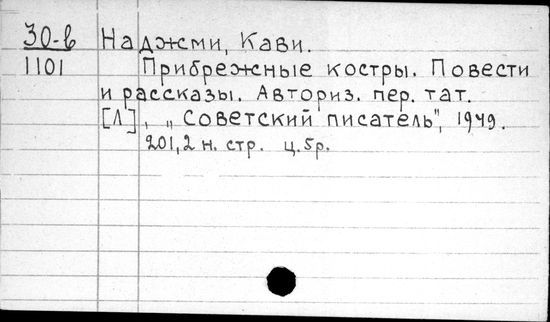 30-в Наджми, Кави.
1101 Прибрежные костры. Повести
и рассказы. Авториз. пер. тат.
[Л], „Советский писатель", 1949.
201,2 н. стр. ц. 5р.